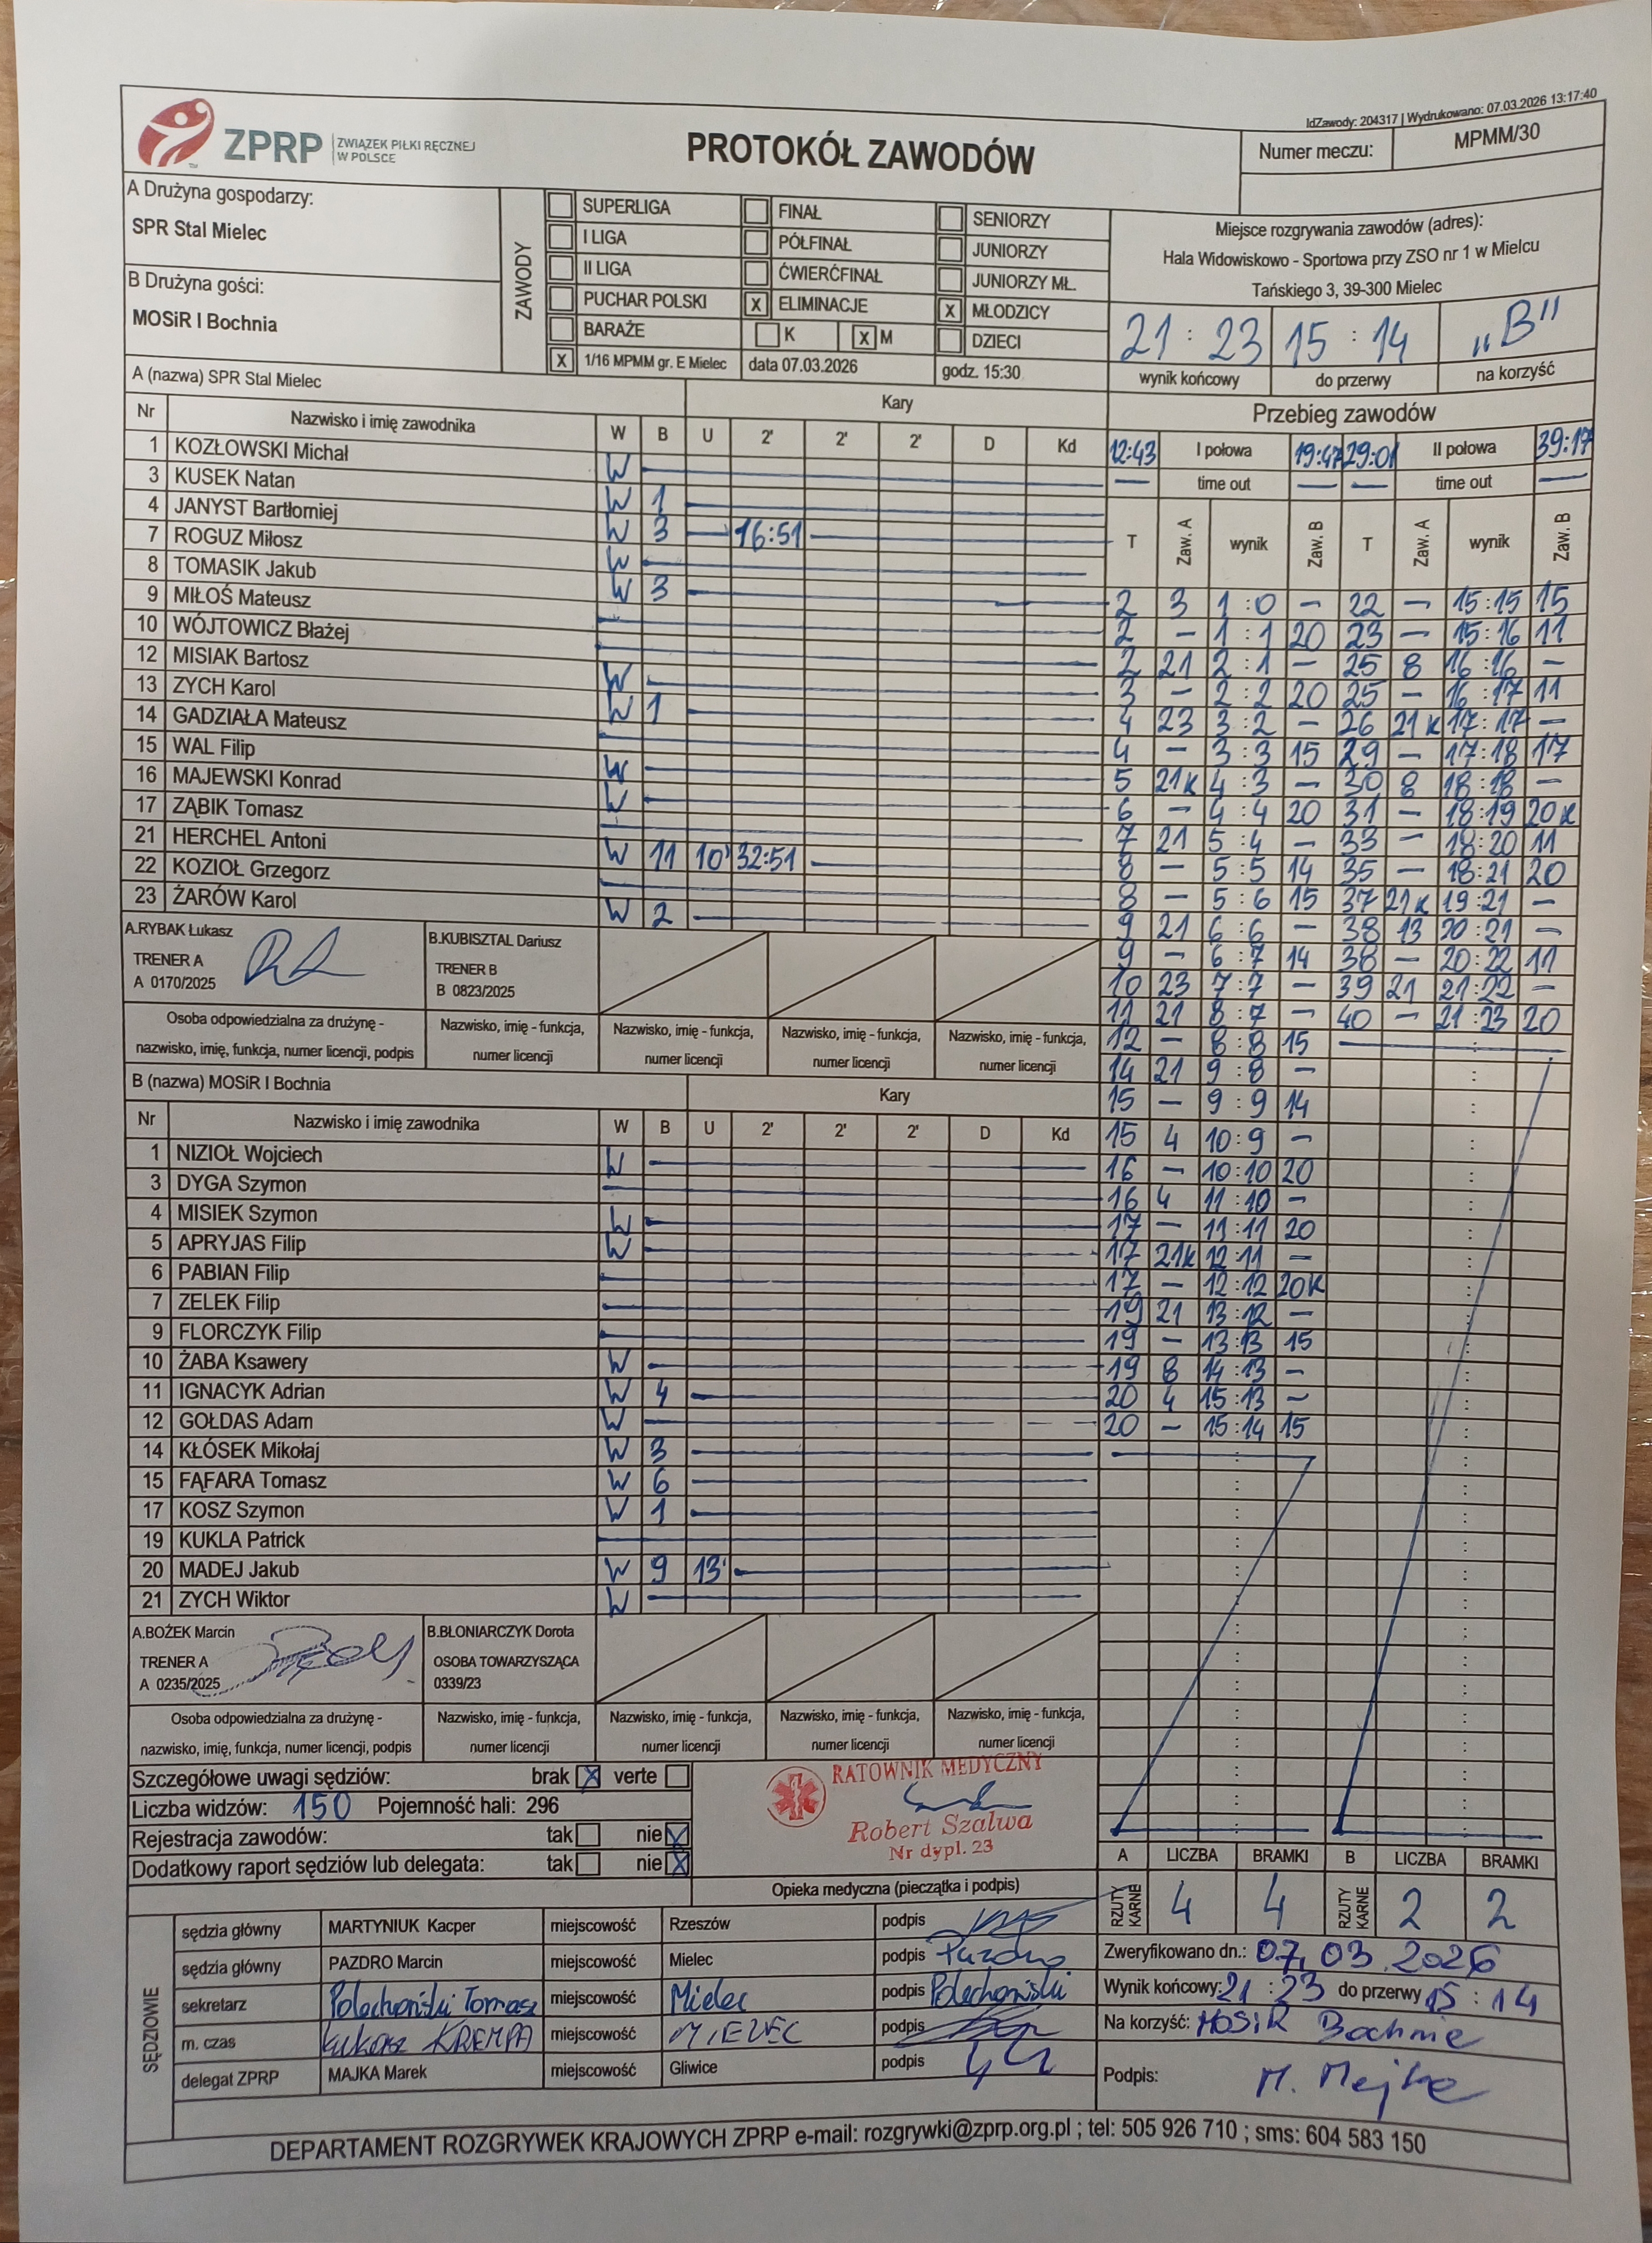 IdZawody: 204317 | Wydrukowano: 07.03.2026 13:17:40
ZPRP ZWIĄZEK PIŁKI RĘCZNEJ W POLSCE
PROTOKÓŁ ZAWODÓW
Numer meczu: MPMM/30
A Drużyna gospodarzy:
SPR Stal Mielec
B Drużyna gości:
MOSiR I Bochnia
ZAWODY
SUPERLIGA FINAŁ SENIORZY
I LIGA PÓŁFINAŁ JUNIORZY
II LIGA ĆWIERĆFINAŁ JUNIORZY MŁ.
PUCHAR POLSKI X ELIMINACJE X MŁODZICY
BARAŻE K X M DZIECI
X 1/16 MPMM gr. E Mielec data 07.03.2026 godz. 15:30
Miejsce rozgrywania zawodów (adres):
Hala Widowiskowo - Sportowa przy ZSO nr 1 w Mielcu
Tańskiego 3, 39-300 Mielec
21 : 23 15 : 14 „B"
wynik końcowy do przerwy na korzyść
A (nazwa) SPR Stal Mielec Kary
Nr Nazwisko i imię zawodnika W B U 2' 2' 2' D Kd
1 KOZŁOWSKI Michał W
3 KUSEK Natan W 1
4 JANYST Bartłomiej W 3 16:51
7 ROGUZ Miłosz W
8 TOMASIK Jakub W 3
9 MIŁOŚ Mateusz
10 WÓJTOWICZ Błażej
12 MISIAK Bartosz W
13 ZYCH Karol W 1
14 GADZIAŁA Mateusz
15 WAL Filip W
16 MAJEWSKI Konrad W
17 ZĄBIK Tomasz
21 HERCHEL Antoni W 11 10' 32:51
22 KOZIOŁ Grzegorz
23 ŻARÓW Karol W 2
A.RYBAK Łukasz
TRENER A
A 0170/2025
B.KUBISZTAL Dariusz
TRENER B
B 0823/2025
Osoba odpowiedzialna za drużynę - nazwisko, imię, funkcja, numer licencji, podpis
Nazwisko, imię - funkcja, numer licencji
Nazwisko, imię - funkcja, numer licencji
Nazwisko, imię - funkcja, numer licencji
Nazwisko, imię - funkcja, numer licencji
B (nazwa) MOSiR I Bochnia Kary
Nr Nazwisko i imię zawodnika W B U 2' 2' 2' D Kd
1 NIZIOŁ Wojciech W
3 DYGA Szymon
4 MISIEK Szymon W
5 APRYJAS Filip W
6 PABIAN Filip
7 ZELEK Filip
9 FLORCZYK Filip
10 ŻABA Ksawery W
11 IGNACYK Adrian W 4
12 GOŁDAS Adam W
14 KŁÓSEK Mikołaj W 3
15 FĄFARA Tomasz W 6
17 KOSZ Szymon W 1
19 KUKLA Patrick
20 MADEJ Jakub W 9 13'
21 ZYCH Wiktor W
A.BOŻEK Marcin
TRENER A
A 0235/2025
B.BŁONIARCZYK Dorota
OSOBA TOWARZYSZĄCA
0339/23
Osoba odpowiedzialna za drużynę - nazwisko, imię, funkcja, numer licencji, podpis
Nazwisko, imię - funkcja, numer licencji
Nazwisko, imię - funkcja, numer licencji
Nazwisko, imię - funkcja, numer licencji
Nazwisko, imię - funkcja, numer licencji
Przebieg zawodów
12:43 I połowa 19:47 29:01 II połowa 39:17
— time out — — time out —
T Zaw. A wynik Zaw. B T Zaw. A wynik Zaw. B
2 3 1 : 0 — 22 — 15:15 15
2 — 1 : 1 20 23 — 15:16 11
2 21 2 : 1 — 25 8 16:16 —
3 — 2 : 2 20 25 — 16:17 11
4 23 3 : 2 — 26 21K 17:17 —
4 — 3 : 3 15 29 — 17:18 17
5 21K 4 : 3 — 30 8 18:18 —
6 — 4 : 4 20 31 — 18:19 20K
7 21 5 : 4 — 33 — 18:20 11
8 — 5 : 5 14 35 — 18:21 20
8 — 5 : 6 15 37 21K 19:21 —
9 21 6 : 6 — 38 13 20:21 —
9 — 6 : 7 14 38 — 20:22 11
10 23 7 : 7 — 39 21 21:22 —
11 21 8 : 7 — 40 — 21:23 20
12 — 8 : 8 15
14 21 9 : 8 —
15 — 9 : 9 14
15 4 10:9 —
16 — 10:10 20
16 4 11:10 —
17 — 11:11 20
17 21K 12:11 —
17 — 12:12 20K
19 21 13:12 —
19 — 13:13 15
19 8 14:13 —
20 4 15:13 —
20 — 15:14 15
A LICZBA BRAMKI B LICZBA BRAMKI
RZUTY KARNE 4 4 RZUTY KARNE 2 2
Szczegółowe uwagi sędziów: brak X verte
Liczba widzów: 150 Pojemność hali: 296
Rejestracja zawodów: tak nie X
Dodatkowy raport sędziów lub delegata: tak nie X
RATOWNIK MEDYCZNY
Robert Szalwa
Nr dypl. 23
Opieka medyczna (pieczątka i podpis)
SĘDZIOWIE
sędzia główny MARTYNIUK Kacper miejscowość Rzeszów podpis
sędzia główny PAZDRO Marcin miejscowość Mielec podpis Pazdro
sekretarz Polechoński Tomasz miejscowość Mielec podpis Polechoński
m. czas Łukasz KREMPA miejscowość MIELEC podpis
delegat ZPRP MAJKA Marek miejscowość Gliwice podpis
Zweryfikowano dn.: 07.03.2026
Wynik końcowy: 21 : 23 do przerwy 15 : 14
Na korzyść: MOSiR Bochnie
Podpis: M. Majka
DEPARTAMENT ROZGRYWEK KRAJOWYCH ZPRP e-mail: rozgrywki@zprp.org.pl ; tel: 505 926 710 ; sms: 604 583 150